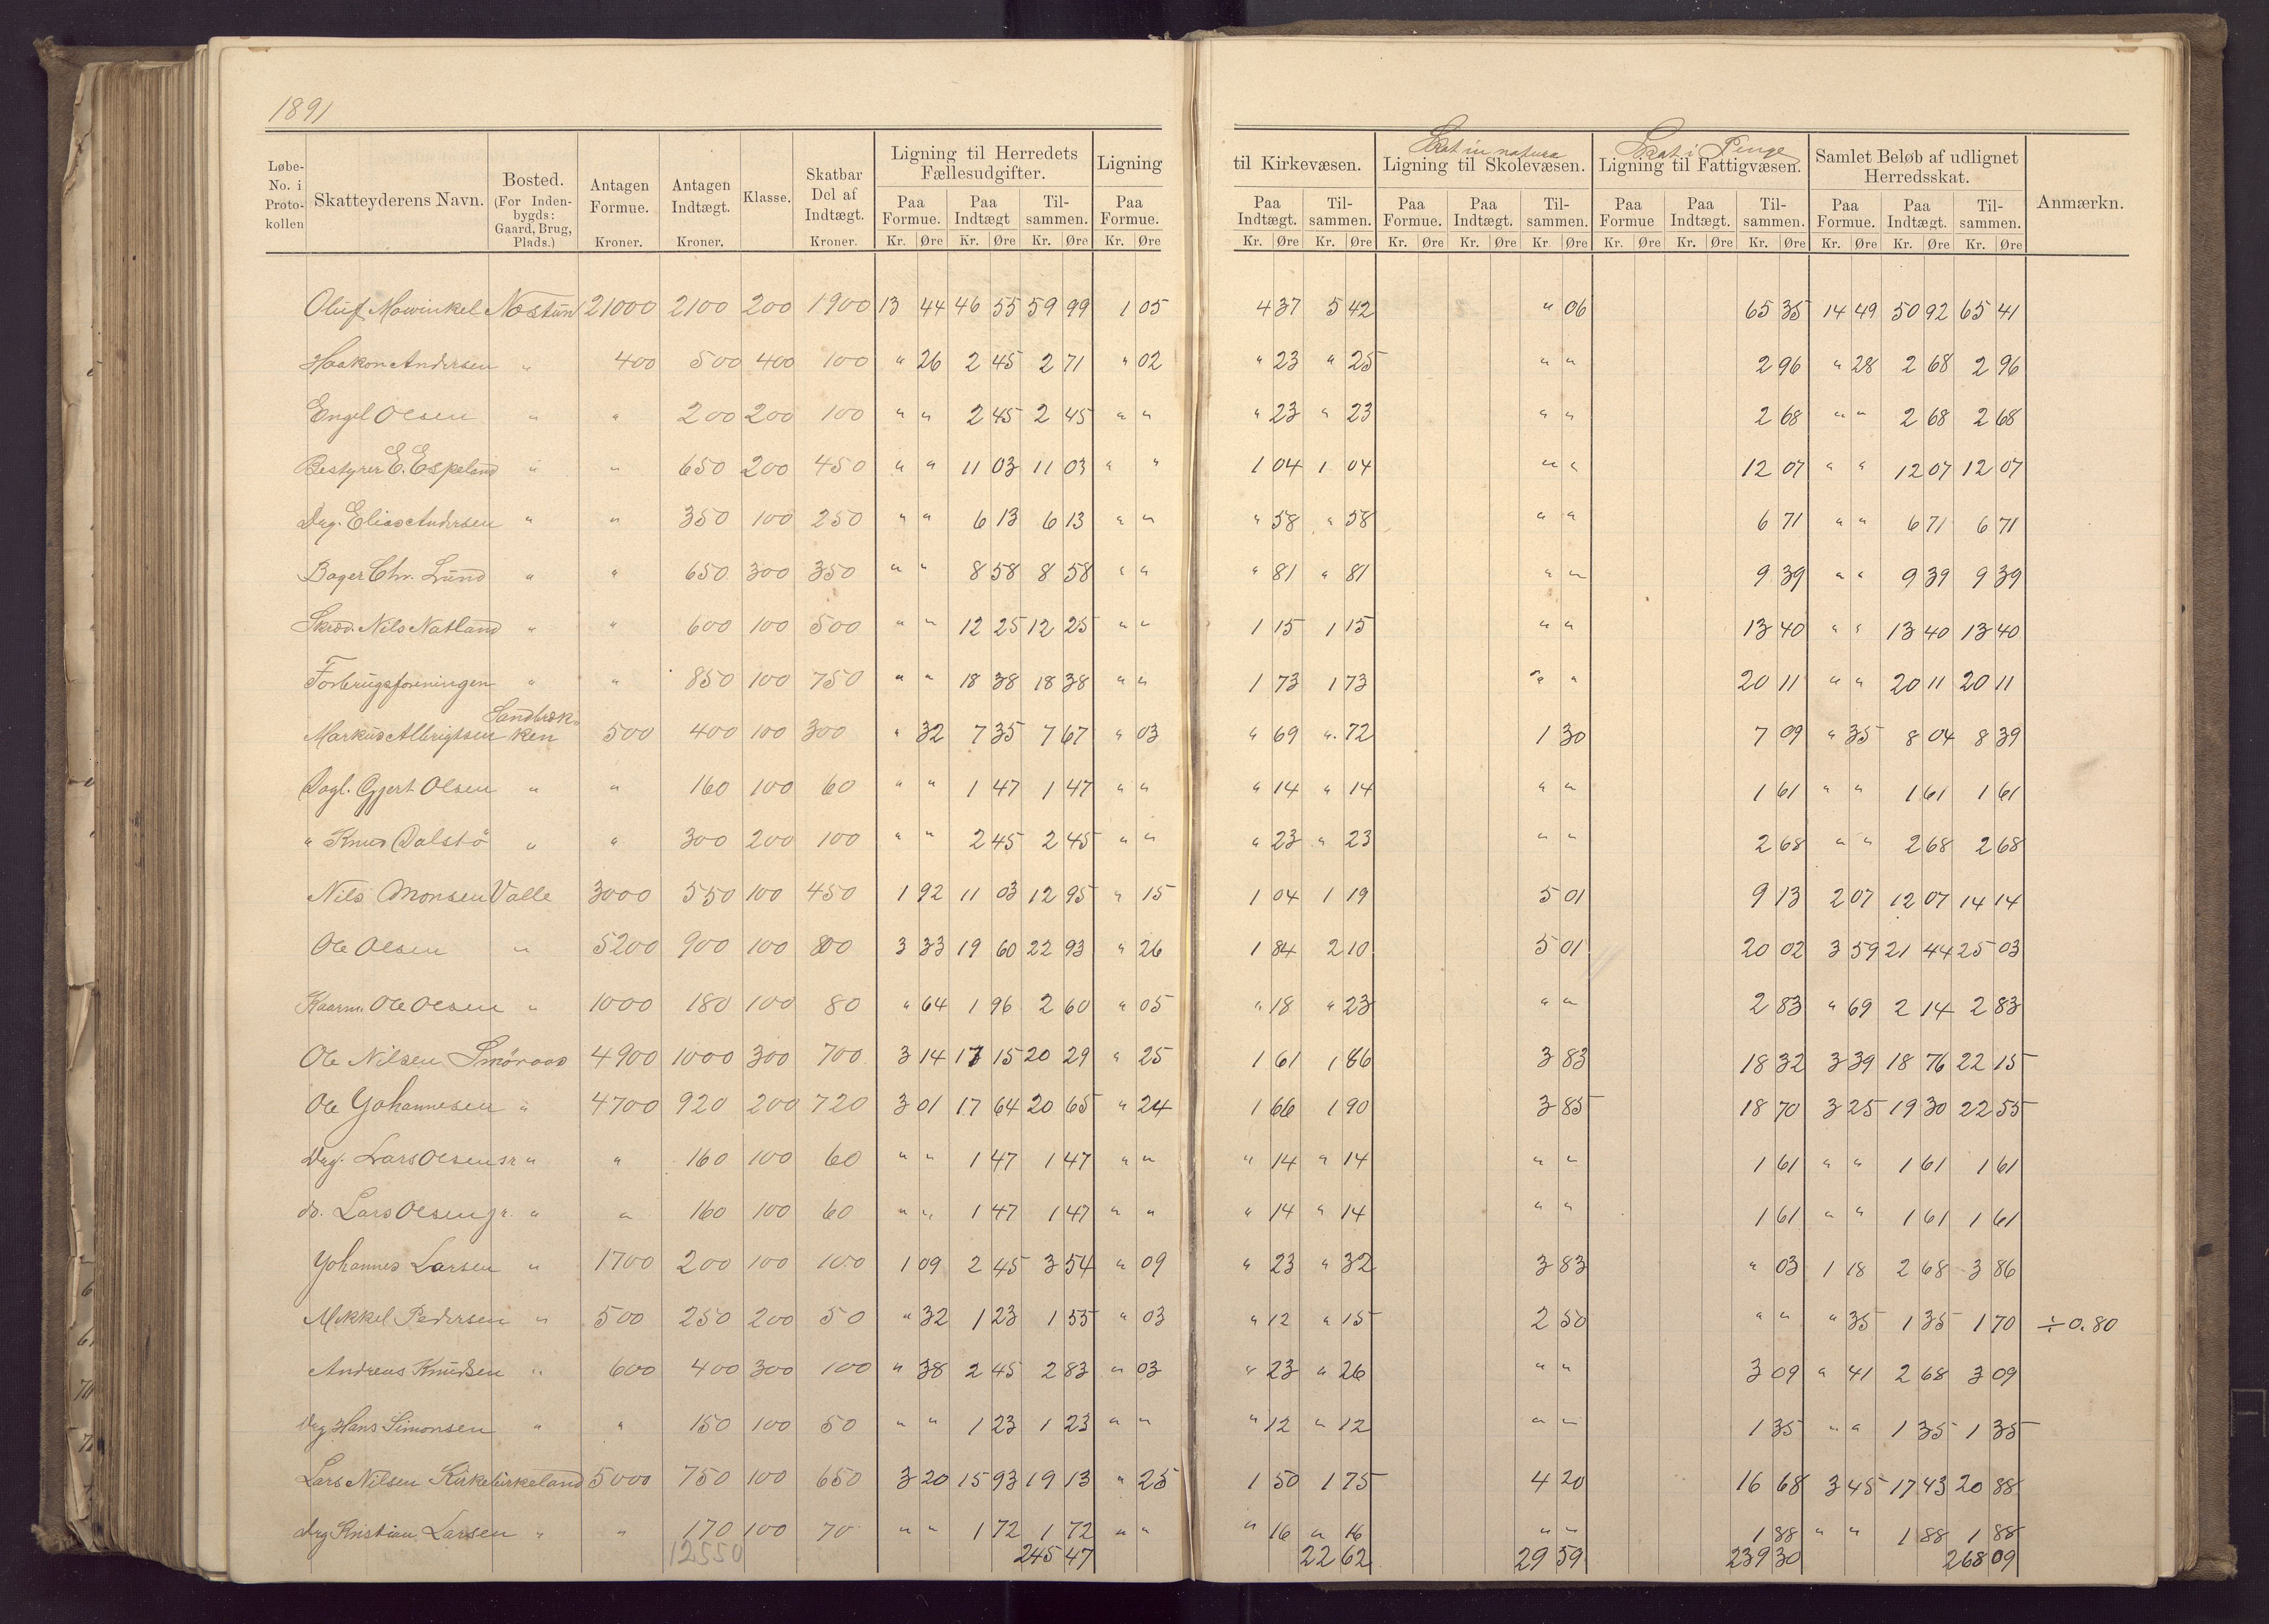 1891
Løbe-No. i Proto-kollen | Skatteyderens Navn. | Bosted. (For Inden-bygds: Gaard, Brug, Plads.) | Antagen Formue. Kroner. | Antagen Indtægt. Kroner. | Klasse. | Skatbar Del af Indtægt. Kroner. | Ligning til Herredets Fællesudgifter. Paa Formue. Kr. Øre | Paa Indtægt Kr. Øre | Til-sammen. Kr. Øre | Ligning Paa Formue. Kr. Øre | til Kirkevæsen. Paa Indtægt. Kr. Øre | Til-sammen. Kr. Øre | Skat in natura Ligning til Skolevæsen. Paa Formue. Kr. Øre | Paa Indtægt. Kr. Øre | Til-sammen. Kr. Øre | Skat i Penge Ligning til Fattigvæsen. Paa Formue Kr. Øre | Paa Indtægt. Kr. Øre | Til-sammen. Kr. Øre | Samlet Beløb af udlignet Herredsskat. Paa Formue. Kr. Øre | Paa Indtægt. Kr. Øre | Til-sammen. Kr. Øre | Anmærkn.
Oluf Mowinkel Nøstun 21000 2100 200 1900 13 44 46 55 59 99 1 05 4 37 5 42 " 06 65 35 14 49 50 92 65 41
Haakon Andersen " 400 500 400 100 " 26 2 45 2 71 " 02 " 23 " 25 " " 2 96 " 28 2 68 2 96
Engel Olsen " " 200 200 100 " " 2 45 2 45 " " " 23 " 23 " " 2 68 " " 2 68 2 68
Bestyrer E. Espeland " " 650 200 450 " " 11 03 11 03 " " 1 04 1 04 " " 12 07 " " 12 07 12 07
Dag. Elias Andersen " " 350 100 250 " " 6 13 6 13 " " " 58 " 58 " " 6 71 " " 6 71 6 71
Bager Chr. Lund " " 650 300 350 " " 8 58 8 58 " " " 81 " 81 " " 9 39 " " 9 39 9 39
Skræd. Nils Natland " " 600 100 500 " " 12 25 12 25 " " 1 15 1 15 " " 13 40 " " 13 40 13 40
Forbrugsforeningen " " 850 100 750 " " 18 38 18 38 " " 1 73 1 73 " " 20 11 " " 20 11 20 11
Markus Albrigtsen Sandbrækken 500 400 100 300 " 32 7 35 7 67 " 03 " 69 " 72 1 30 7 09 " 35 8 04 8 39
Dagl. Gjert Olsen " " 160 100 60 " " 1 47 1 47 " " " 14 " 14 " " 1 61 " " 1 61 1 61
" Knud Dalstö " " 300 200 100 " " 2 45 2 45 " " " 23 " 23 " " 2 68 " " 2 68 2 68
Nils Monsen Valle 3000 550 100 450 1 92 11 03 12 95 " 15 1 04 1 19 5 01 9 13 2 07 12 07 14 14
Ole Olsen " 5200 900 100 800 3 33 19 60 22 93 " 26 1 84 2 10 5 01 20 02 3 59 21 44 25 03
Kaarm. Ole Olsen " 1000 180 100 80 " 64 1 96 2 60 " 05 " 18 " 23 " " 2 83 " 69 2 14 2 83
Ole Nilsen Smöraas 4900 1000 300 700 3 14 17 15 20 29 " 25 1 61 1 86 3 83 18 32 3 39 18 76 22 15
Ole Johannesen " 4700 920 200 720 3 01 17 64 20 65 " 24 1 66 1 90 3 85 18 70 3 25 19 30 22 55
Dag. Lars Olsen sr " " 160 100 60 " " 1 47 1 47 " " " 14 " 14 " " 1 61 " " 1 61 1 61
do. Lars Olsen jr. " " 160 100 60 " " 1 47 1 47 " " " 14 " 14 " " 1 61 " " 1 61 1 61
Johannes Larsen " 1700 200 100 100 1 09 2 45 3 54 " 09 " 23 " 32 3 83 " 03 1 18 2 68 3 86
Mikkel Pedersen " 500 250 200 50 " 32 1 23 1 55 " 03 " 12 " 15 2 50 " " " 35 1 35 1 70 ÷0.80
Andreas Knudsen " 600 400 300 100 " 38 2 45 2 83 " 03 " 23 " 26 " " 3 09 " 41 2 68 3 09
Dag Hans Simonsen " " 150 100 50 " " 1 23 1 23 " " " 12 " 12 " " 1 35 " " 1 35 1 35
Lars Nilsen Kirkebirkeland 5000 750 100 650 3 20 15 93 19 13 " 25 1 50 1 75 4 20 16 68 3 45 17 43 20 88
Dag Kristian Larsen " " 170 100 70 " " 1 72 1 72 " " " 16 " 16 " " 1 88 " " 1 88 1 88
12550 245 47 22 62 29 59 239 30 268 09